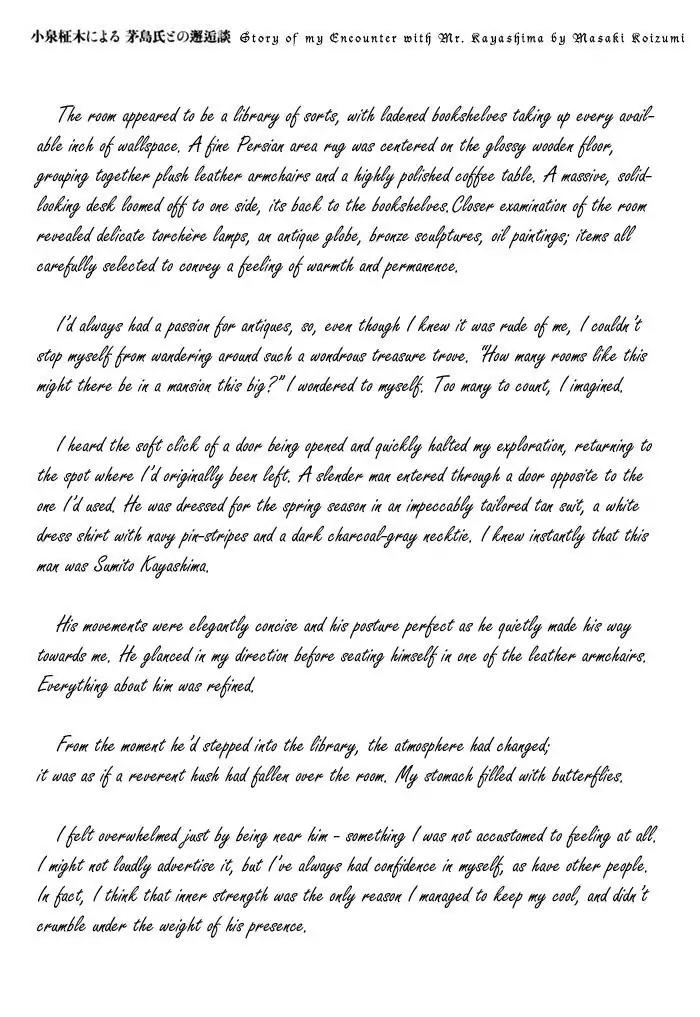 小泉柾木による 茅島氏との邂逅談 Story of my Encounter with Mr. Kayashima by Masaki Koizumi
The room appeared to be a library of sorts, with ladened bookshelves taking up every avail-
able inch of wallspace. A fine Persian area rug was centered on the glossy wooden floor,
grouping together plush leather armchairs and a highly polished coffee table. A massive, solid-
looking desk loomed off to one side, its back to the bookshelves.Closer examination of the room
revealed delicate torchère lamps, an antique globe, bronze sculptures, oil paintings; items all
carefully selected to convey a feeling of warmth and permanence.
I'd always had a passion for antiques, so, even though I knew it was rude of me, I couldn't
stop myself from wandering around such a wondrous treasure trove. "How many rooms like this
might there be in a mansion this big?" I wondered to myself. Too many to count, I imagined.
I heard the soft click of a door being opened and quickly halted my exploration, returning to
the spot where I'd originally been left. A slender man entered through a door opposite to the
one I'd used. He was dressed for the spring season in an impeccably tailored tan suit, a white
dress shirt with navy pin-stripes and a dark charcoal-gray necktie. I knew instantly that this
man was Sumito Kayashima.
His movements were elegantly concise and his posture perfect as he quietly made his way
towards me. He glanced in my direction before seating himself in one of the leather armchairs.
Everything about him was refined.
From the moment he'd stepped into the library, the atmosphere had changed;
it was as if a reverent hush had fallen over the room. My stomach filled with butterflies.
I felt overwhelmed just by being near him - something I was not accustomed to feeling at all.
I might not loudly advertise it, but I've always had confidence in myself, as have other people.
In fact, I think that inner strength was the only reason I managed to keep my cool, and didn't
crumble under the weight of his presence.